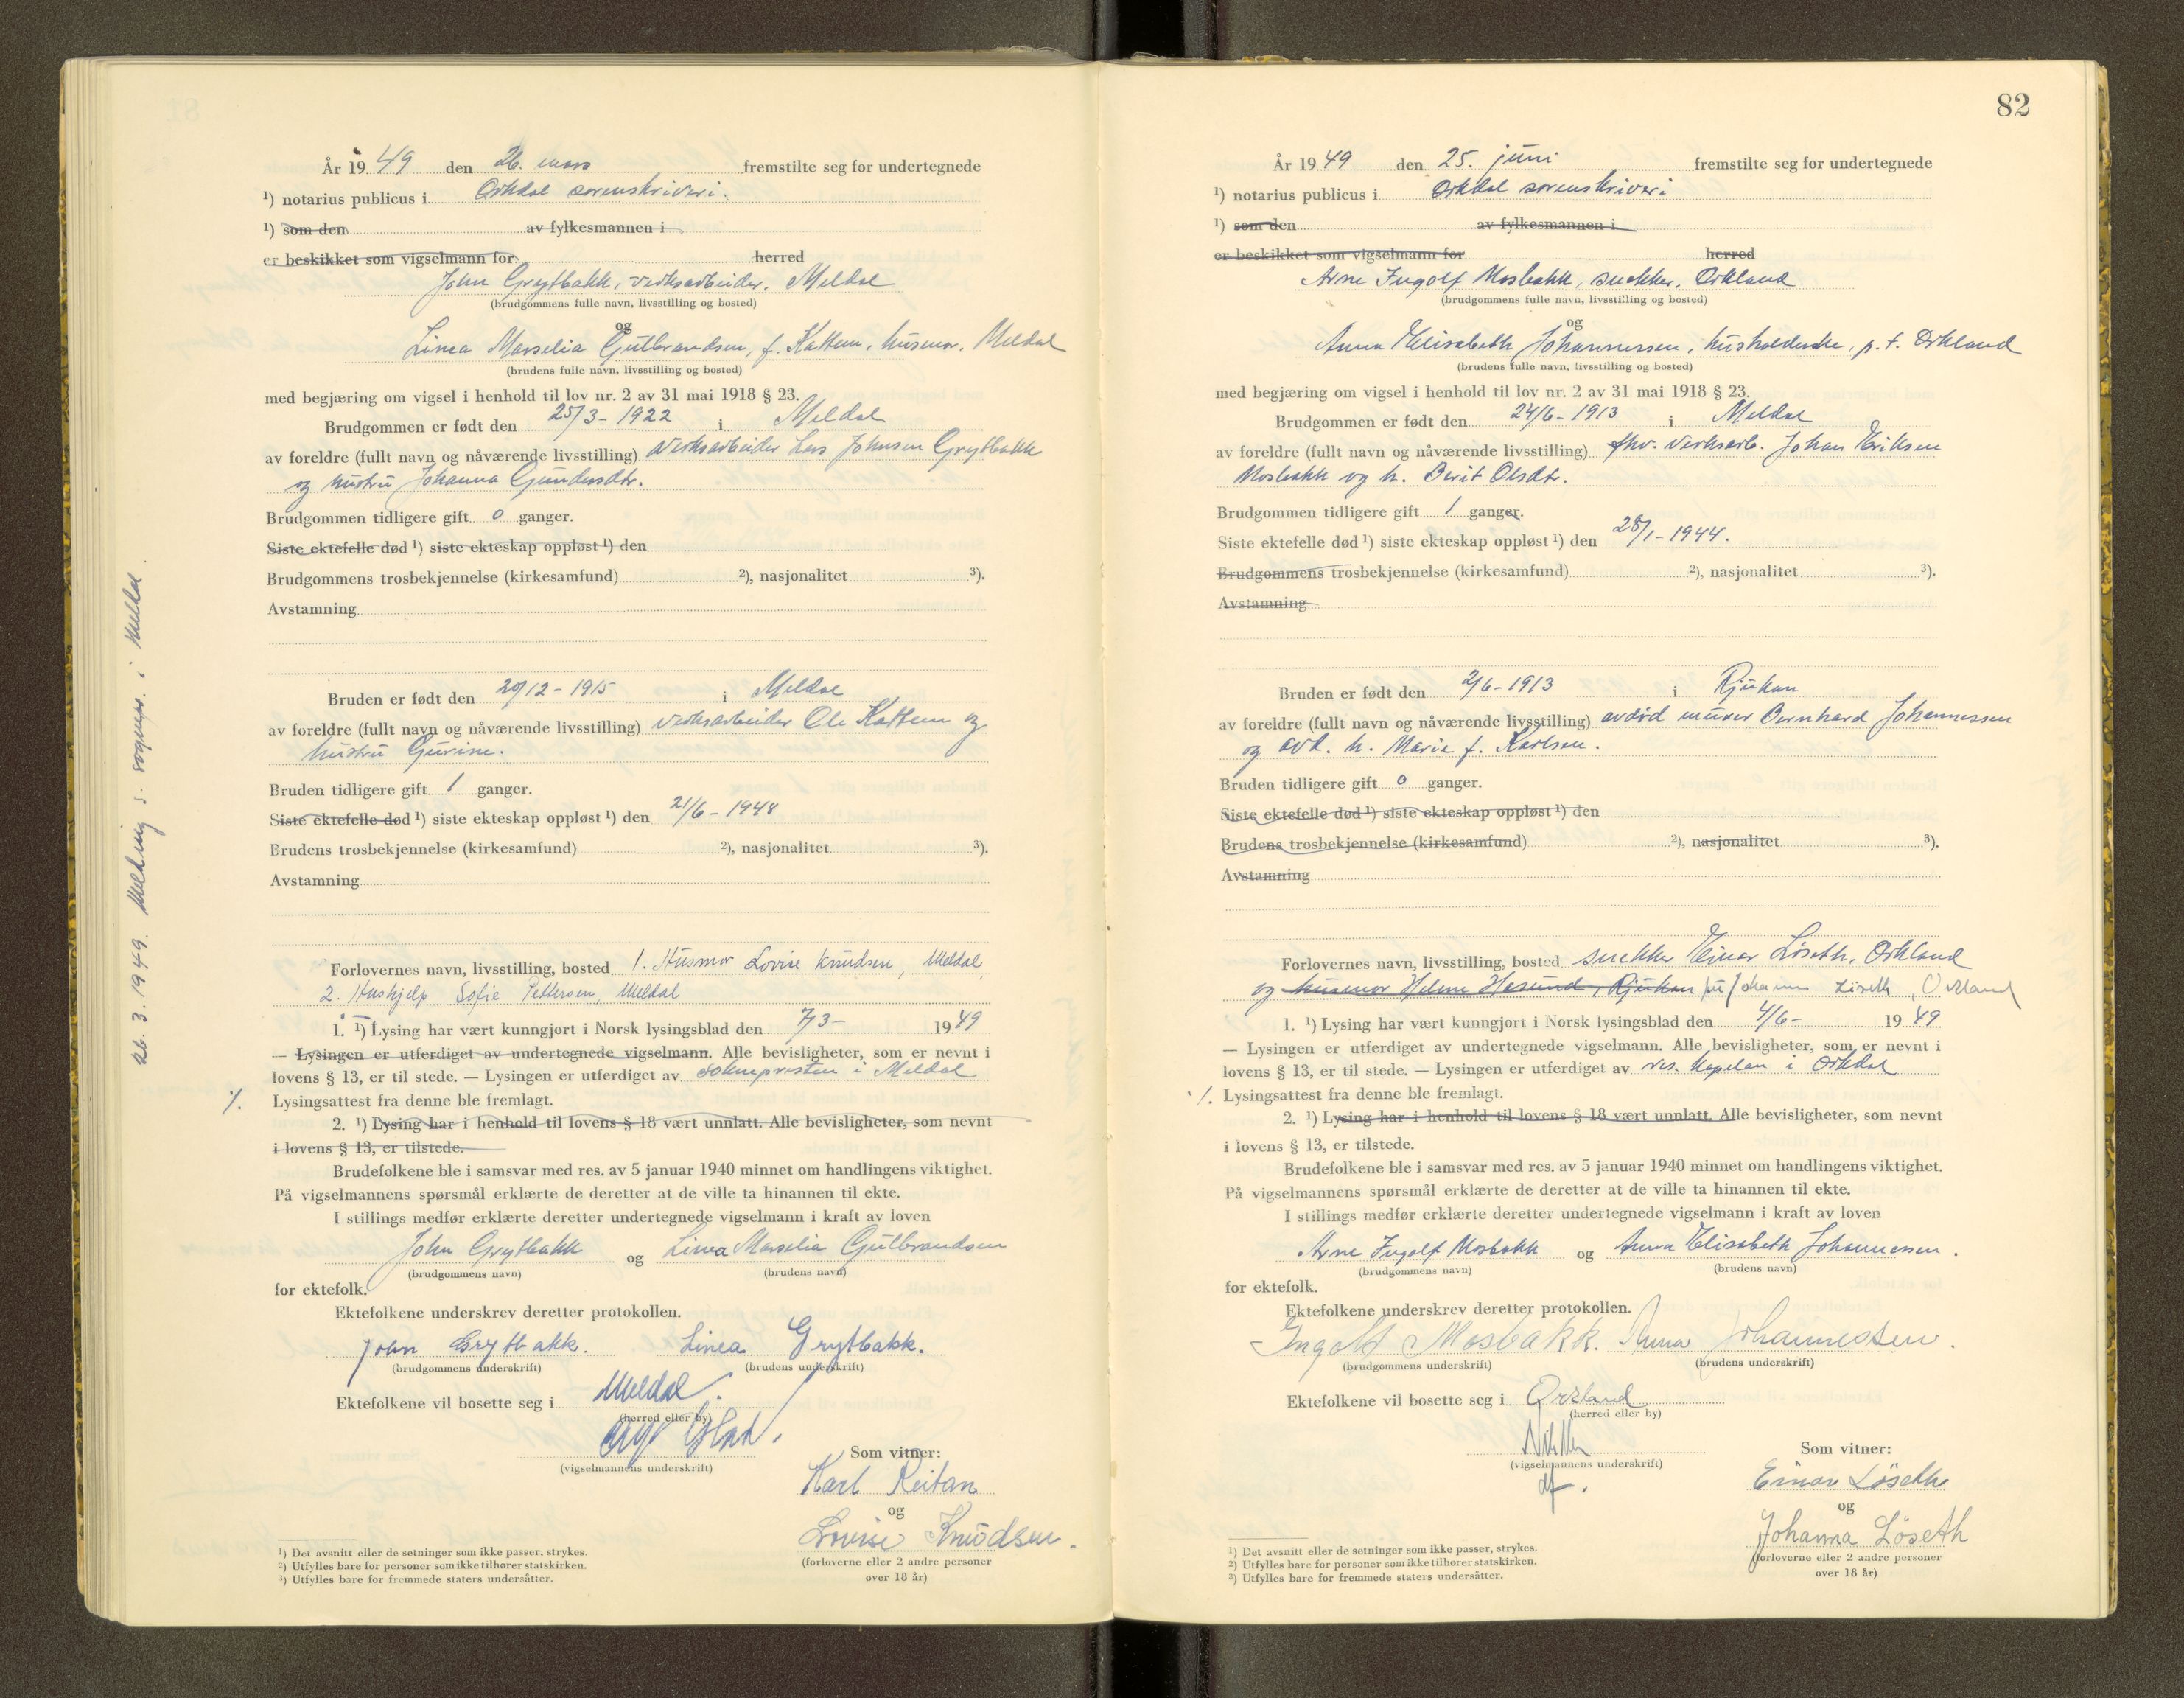 År 1949 den 26. mars fremstilte seg for undertegnede
¹) notarius publicus i Orkdal sorenskriveri.
¹) som den av fylkesmannen i
er beskikket som vigselmann for herred
John Grytbakk, verksarbeider, Meldal
(brudgommens fulle navn, livsstilling og bosted)
og
Linea Marselia Gulbrandsen, f. Kattem, husmor, Meldal
(brudens fulle navn, livsstilling og bosted)
med begjæring om vigsel i henhold til lov nr. 2 av 31 mai 1918 § 23.
Brudgommen er født den 25/3-1922 i Meldal
av foreldre (fullt navn og nåværende livsstilling) verksarbeider Lars Johnsen Grytbakk
og hustru Johanna Gundersdtr.
Brudgommen tidligere gift 0 ganger.
Siste ektefelle død ¹) siste ekteskap oppløst ¹) den
Brudgommens trosbekjennelse (kirkesamfund) ²), nasjonalitet ³).
Avstamning
Bruden er født den 20/12-1915 i Meldal
av foreldre (fullt navn og nåværende livsstilling) verksarbeider Ole Kattem og
hustru Gurine.
Bruden tidligere gift 1 ganger.
Siste ektefelle død ¹) siste ekteskap oppløst ¹) den 21/6-1948
Brudens trosbekjennelse (kirkesamfund) ²), nasjonalitet ³).
Avstamning
Forlovernes navn, livsstilling, bosted 1. Husmor Lovise Knudsen, Meldal,
2. Hushjelp Sofie Pettersen, Meldal
1. ¹) Lysing har vært kunngjort i Norsk lysingsblad den 7/3- 1949
— Lysingen er utferdiget av undertegnede vigselmann. Alle bevisligheter, som er nevnt i
lovens § 13, er til stede. — Lysingen er utferdiget av soknepresten i Meldal
./. Lysingsattest fra denne ble fremlagt.
2. ¹) Lysing har i henhold til lovens § 18 vært unnlatt. Alle bevisligheter, som nevnt
i lovens § 13, er tilstede.
Brudefolkene ble i samsvar med res. av 5 januar 1940 minnet om handlingens viktighet.
På vigselmannens spørsmål erklærte de deretter at de ville ta hinannen til ekte.
I stillings medfør erklærte deretter undertegnede vigselmann i kraft av loven
John Grytbakk og Linea Marselia Gulbrandsen
(brudgommens navn) (brudens navn)
for ektefolk.
Ektefolkene underskrev deretter protokollen.
John Grytbakk. Linea Grytbakk.
(brudgommens underskrift) (brudens underskrift)
Ektefolkene vil bosette seg i Meldal.
(herred eller by)
(vigselmannens underskrift)
Som vitner:
Karl Reitan
og
Lovise Knudsen.
(forloverne eller 2 andre personer
over 18 år)
¹) Det avsnitt eller de setninger som ikke passer, strykes.
²) Utfylles bare for personer som ikke tilhører statskirken.
³) Utfylles bare for fremmede staters undersåtter.
26.3.1949. Melding s. sognepr. i Meldal.
82
År 1949 den 25. juni fremstilte seg for undertegnede
¹) notarius publicus i Orkdal sorenskriveri
¹) som den av fylkesmannen i
er beskikket som vigselmann for herred
Arne Ingolf Mosbakk, snekker, Orkland
(brudgommens fulle navn, livsstilling og bosted)
og
Anna Elisabeth Johannessen, husholderske, p.t. Orkland
(brudens fulle navn, livsstilling og bosted)
med begjæring om vigsel i henhold til lov nr. 2 av 31 mai 1918 § 23.
Brudgommen er født den 24/6-1913 i Meldal
av foreldre (fullt navn og nåværende livsstilling) fhv. verksarb. Johan Eriksen
Mosbakk og h. Berit Olsdtr.
Brudgommen tidligere gift 1 ganger.
Siste ektefelle død ¹) siste ekteskap oppløst ¹) den 28/1-1944.
Brudgommens trosbekjennelse (kirkesamfund) ²), nasjonalitet ³).
Avstamning
Bruden er født den 2/6-1913 i Rjukan
av foreldre (fullt navn og nåværende livsstilling) avdød murer Bernhard Johannessen
og avd. h. Marie f. Karlsen.
Bruden tidligere gift 0 ganger.
Siste ektefelle død ¹) siste ekteskap oppløst ¹) den
Brudens trosbekjennelse (kirkesamfund) ²), nasjonalitet ³).
Avstamning
Forlovernes navn, livsstilling, bosted snekker Einar Løseth, Orkland
og husmor Helene Hasund, Rjukan fru Johanna Løseth, Orkland
1. ¹) Lysing har vært kunngjort i Norsk lysingsblad den 4/6- 1949
— Lysingen er utferdiget av undertegnede vigselmann. Alle bevisligheter, som er nevnt i
lovens § 13, er til stede. — Lysingen er utferdiget av res. kapelan i Orkdal
./. Lysingsattest fra denne ble fremlagt.
2. ¹) Lysing har i henhold til lovens § 18 vært unnlatt. Alle bevisligheter, som nevnt
i lovens § 13, er tilstede.
Brudefolkene ble i samsvar med res. av 5 januar 1940 minnet om handlingens viktighet.
På vigselmannens spørsmål erklærte de deretter at de ville ta hinannen til ekte.
I stillings medfør erklærte deretter undertegnede vigselmann i kraft av loven
Arne Ingolf Mosbakk og Anna Elisabeth Johannessen.
(brudgommens navn) (brudens navn)
for ektefolk.
Ektefolkene underskrev deretter protokollen.
Ingolf Mosbakk. Anna Johannessen.
(brudgommens underskrift) (brudens underskrift)
Ektefolkene vil bosette seg i Orkland
(herred eller by)
(vigselmannens underskrift)
Som vitner:
Einar Löseth
og
Johanna Löseth
(forloverne eller 2 andre personer
over 18 år)
¹) Det avsnitt eller de setninger som ikke passer, strykes.
²) Utfylles bare for personer som ikke tilhører statskirken.
³) Utfylles bare for fremmede staters undersåtter.